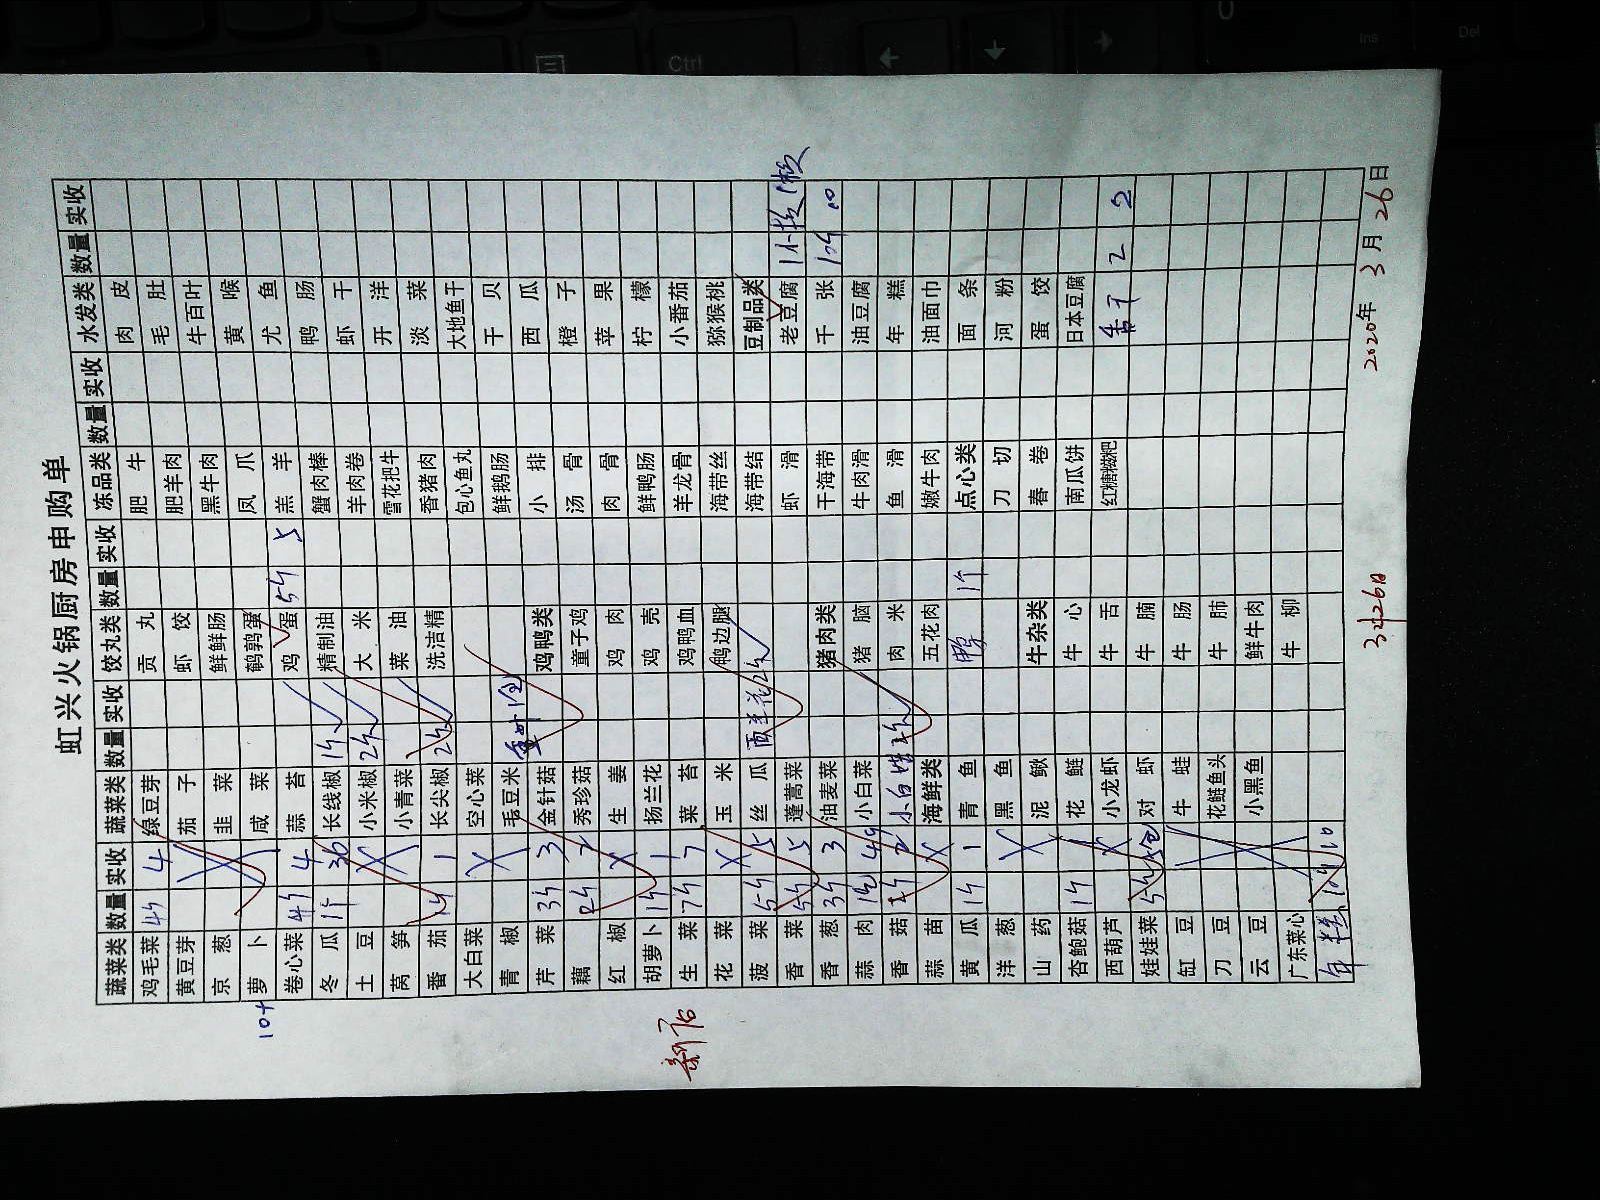 虹兴火锅厨房申购单
蔬菜类 数量 实收 蔬菜类 数量 实收 饺丸类 数量 实收 冻品类 数量 实收 水发类 数量 实收
鸡毛菜 4斤 4 绿豆芽 贡丸 肥牛 肉皮
黄豆芽 茄子 虾饺 肥羊肉 毛肚
京葱 韭菜 鲜鲜肠 黑牛肉 牛百叶
萝卜 咸菜 鹌鹑蛋 凤爪 黄喉
卷心菜 4斤 4 蒜苔 鸡蛋 5斤 5 羔羊 尤鱼
冬瓜 1个 长线椒 1斤 精制油 蟹肉棒 鸭肠
土豆 X 小米椒 2斤 大米 羊肉卷 虾干
莴笋 小青菜 菜油 雪花把牛 开洋
番茄 1斤 1 长尖椒 2斤 洗洁精 香猪肉 淡菜
大白菜 空心菜 包心鱼丸 大地鱼干
青椒 X 毛豆米 鲜鹅肠 干贝
芹菜 3斤 3 金针菇 鸡鸭类 小排 西瓜
藕 2斤 2 秀珍菇 童子鸡 汤骨 橙子
红椒 X 生姜 鸡肉 肉骨 苹果
胡萝卜 1斤 1 扬兰花 鸡壳 鲜鸭肠 柠檬
生菜 7斤 7 菜苔 鸡鸭血 羊龙骨 小番茄
花菜 X 玉米 鸭边腿 海带丝 猕猴桃
菠菜 5斤 5 丝瓜 海带结 豆制品类
香菜 5斤 5 蓬蒿菜 虾滑 老豆腐
香葱 3斤 3 油麦菜 猪肉类 干海带 千张 10斤 10
蒜肉 小白菜 猪脑 牛肉滑 油豆腐
香菇 2斤 2 肉米 鱼滑 年糕
蒜苗 X 海鲜类 五花肉 嫩牛肉 油面巾
黄瓜 1斤 1 青鱼 1个 点心类 面条
洋葱 X 黑鱼 刀切 河粉
山药 泥鳅 牛杂类 春卷 蛋饺
杏鲍菇 1斤 花鲢 牛心 南瓜饼 日本豆腐
西葫芦 X 小龙虾 牛舌 红糖糍粑 香干 2 2
娃娃菜 对虾 牛腩
缸豆 牛蛙 牛肠
刀豆 花鲢鱼头 牛肺
云豆 小黑鱼 鲜牛肉
广东菜心 牛柳
年糕 10斤 10
2020年 3月 26日
3月26日